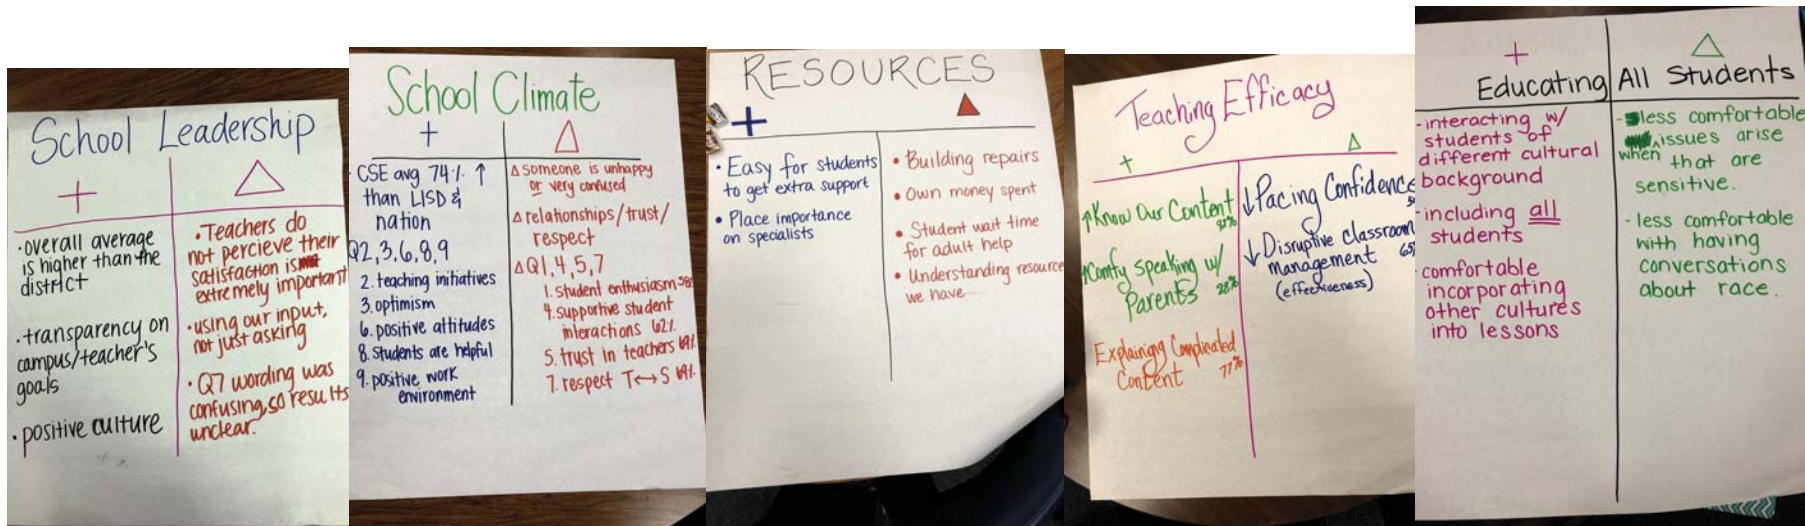 School Leadership
+ △
· overall average
is higher than the
district
· transparency on
campus/teacher's
goals
· positive culture
· Teachers do
not percieve their
satisfaction is
extremely important
· using our input,
not just asking
· Q7 wording was
confusing, so results
unclear.
School Climate
+ △
CSE avg 74% ↑
than LISD &
nation
Q2,3,6,8,9
2. teaching initiatives
3. optimism
6. positive attitudes
8. students are helpful
9. positive work
environment
△ someone is unhappy
or very confused
△ relationships/trust/
respect
△ Q1,4,5,7
1. student enthusiasm
4. supportive student
interactions 62%
5. trust in teachers 69%
7. respect T↔S 69%
RESOURCES
+ ▲
• Easy for students
to get extra support
• Place importance
on specialists
• Building repairs
• Own money spent
• Student wait time
for adult help
• Understanding resource
we have
Teaching Efficacy
+ △
↑Know Our Content
↑Comfy speaking w/
Parents
Explaining Complicated
Content 77%
↓Pacing Confidence
↓Disruptive classroom
management
(effectiveness)
+ △
Educating All Students
-interacting w/
students of
different cultural
background
-including all
students
comfortable
incorporating
other cultures
into lessons
- less comfortable
when issues arise
that are
sensitive.
- less comfortable
with having
conversations
about race.